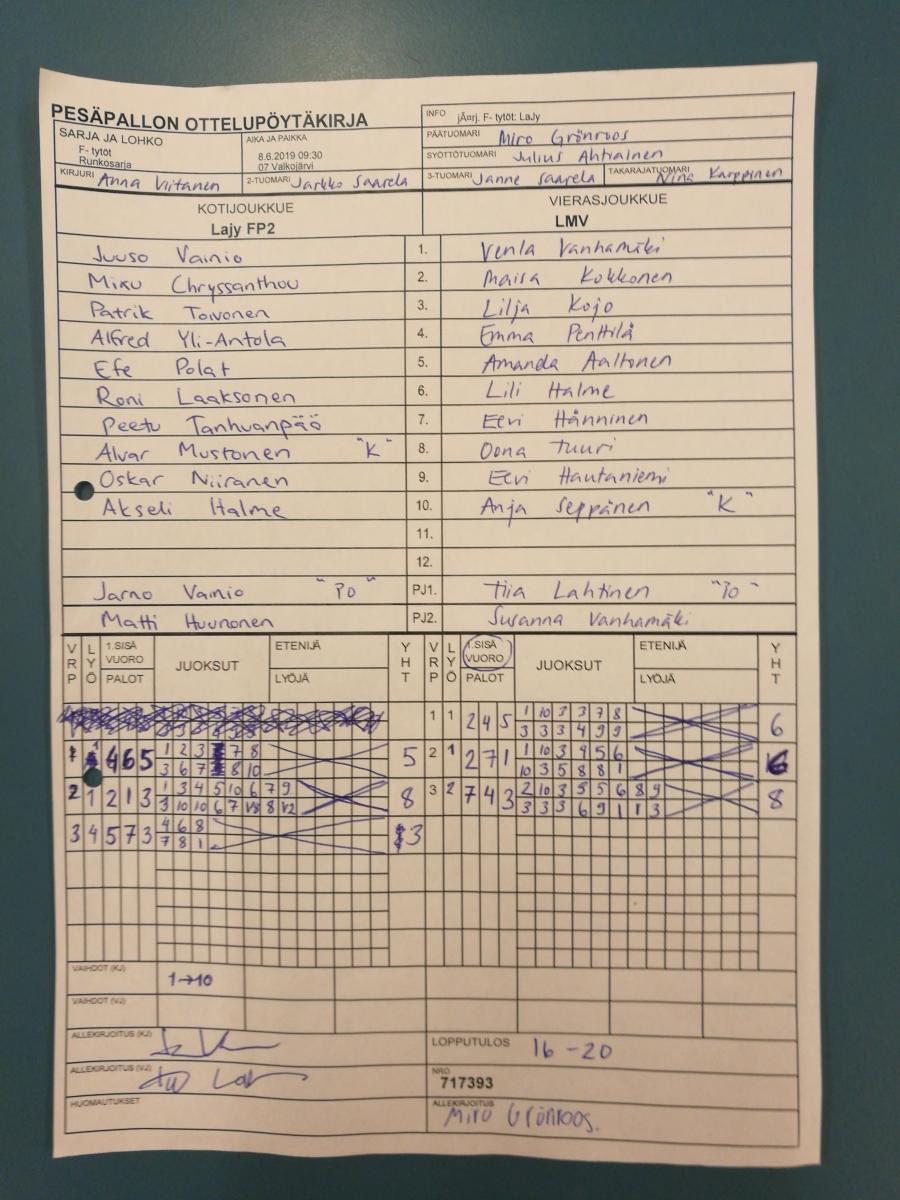 PESÄPALLON OTTELUPÖYTÄKIRJA
INFO jÃ¤rj. F- tytöt: LaJy
SARJA JA LOHKO
F- tytöt
Runkosarja
AIKA JA PAIKKA
8.6.2019 09:30
07 Valkojärvi
PÄÄTUOMARI Miro Grönroos
SYÖTTÖTUOMARI Julius Ahtiainen
KIRJURI Anna Viitanen 2-TUOMARI Jarkko Saarela 3-TUOMARI Janne Saarela TAKARAJATUOMARI Nina Karppinen
KOTIJOUKKUE VIERASJOUKKUE
Lajy FP2 LMV
Juuso Vainio 1. Venla Vanhamäki
Miku Chryssanthou 2. Maisa Kokkonen
Patrik Toivonen 3. Lilja Kojo
Alfred Yli-Antola 4. Emma Penttilä
Efe Polat 5. Amanda Aaltonen
Roni Laaksonen 6. Lili Halme
Peetu Tanhuanpää 7. Eevi Hänninen
Alvar Mustonen "K" 8. Oona Tuuri
Oskar Niiranen 9. Eevi Hautaniemi
Akseli Halme 10. Anja Seppänen "K"
11.
12.
Jarno Vainio "PO" PJ1. Tiia Lahtinen "PO"
Matti Huunonen PJ2. Susanna Vanhamäki
VRP LYÖ 1.SISÄ VUORO PALOT JUOKSUT ETENIJÄ LYÖJÄ YHT VRP LYÖ 1.SISÄ VUORO PALOT JUOKSUT ETENIJÄ LYÖJÄ YHT
1 1 2 4 5 1 10 3 3 7 8 6
3 3 3 4 9 9
1 4 6 5 1 2 3 7 8 5 2 1 2 7 1 1 10 3 4 5 6 6
3 6 7 8 10 10 3 5 8 8 1
2 1 2 1 3 1 3 4 5 10 6 7 9 8 3 2 7 4 3 2 10 3 5 5 6 8 9 8
3 10 10 6 7 V8 8 V2 3 3 3 6 9 1 1 3
3 4 5 7 3 4 6 8 3
7 8 1
VAIHDOT (KJ) 1→10
VAIHDOT (VJ)
ALLEKIRJOITUS (KJ)
LOPPUTULOS 16 - 20
ALLEKIRJOITUS (VJ)
NRO
717393
HUOMAUTUKSET
ALLEKIRJOITUS
Miro Grönroos.